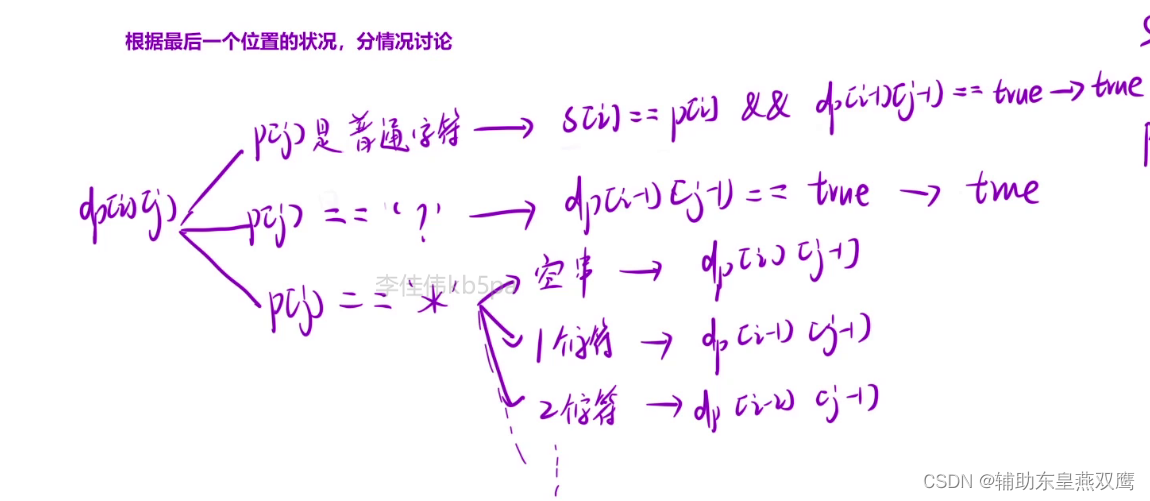 根据最后一个位置的状况，分情况讨论
p[j]是普通字符 → s[i] == p[j] && dp[i-1][j-1] == true → true
dp[i][j]
p[j] == '?' → dp[i-1][j-1] == true → true
p[j] == '*'
空串 → dp[i][j-1]
1个字符 → dp[i-1][j-1]
2个字符 → dp[i-2][j-1]
李佳伟kb5pa
CSDN @辅助东皇燕双鹰